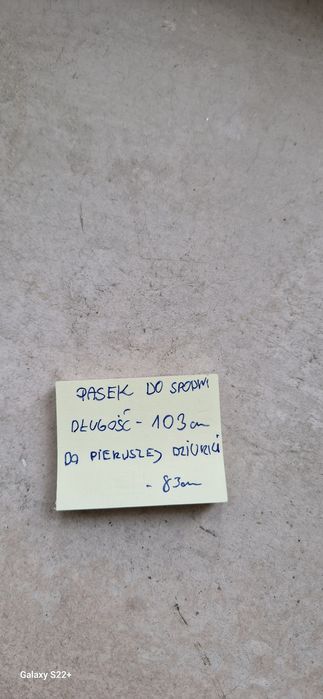 PASEK DO SPODNI
DŁUGOŚĆ - 103 cm
DO PIERWSZEJ DZIURKI
- 83 cm
Galaxy S22+